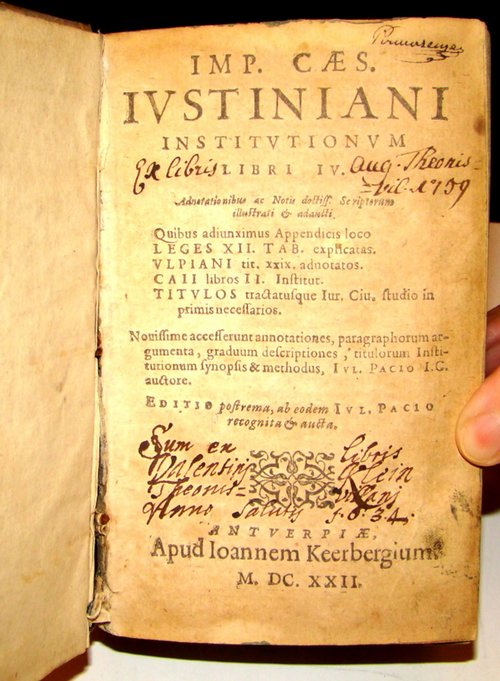 IMP. CÆS.
IVSTINIANI
INSTITVTIONVM
Ex libris LIBRI IV. Aug. Theonis-
vil. 1739
Adnotationibus ac Notis doctiss. Scriptorum
illustrati & adaucti.
Quibus adiunximus Appendicis loco
LEGES XII. TAB. explicatas.
VLPIANI tit. xxix. adnotatos.
CAII libros II. Institut.
TITVLOS tractatusque Iur. Ciu. studio in
primis necessarios.
Nouissime accesserunt annotationes, paragraphorum ar-
gumenta, graduum descriptiones, titulorum Insti-
tutionum synopsis & methodus, IVL. PACIO I.C.
auctore.
EDITIO postrema, ab eodem IVL. PACIO
recognita & aucta.
Sum ex libris
Valentini Klein
Theonis- villani
Anno Salutis 1634.
ANTVERPIÆ,
Apud Ioannem Keerbergium.
M. DC. XXII.